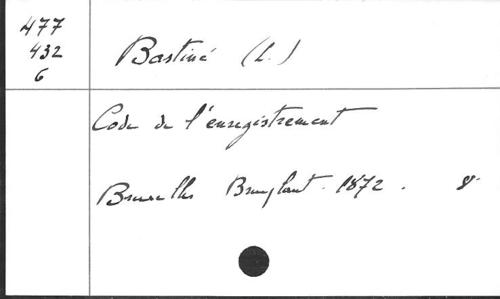 477
432
6
Bastiné (L.)
Code de l'enregistrement
Bruxelles Bruylant. 1872. 8°